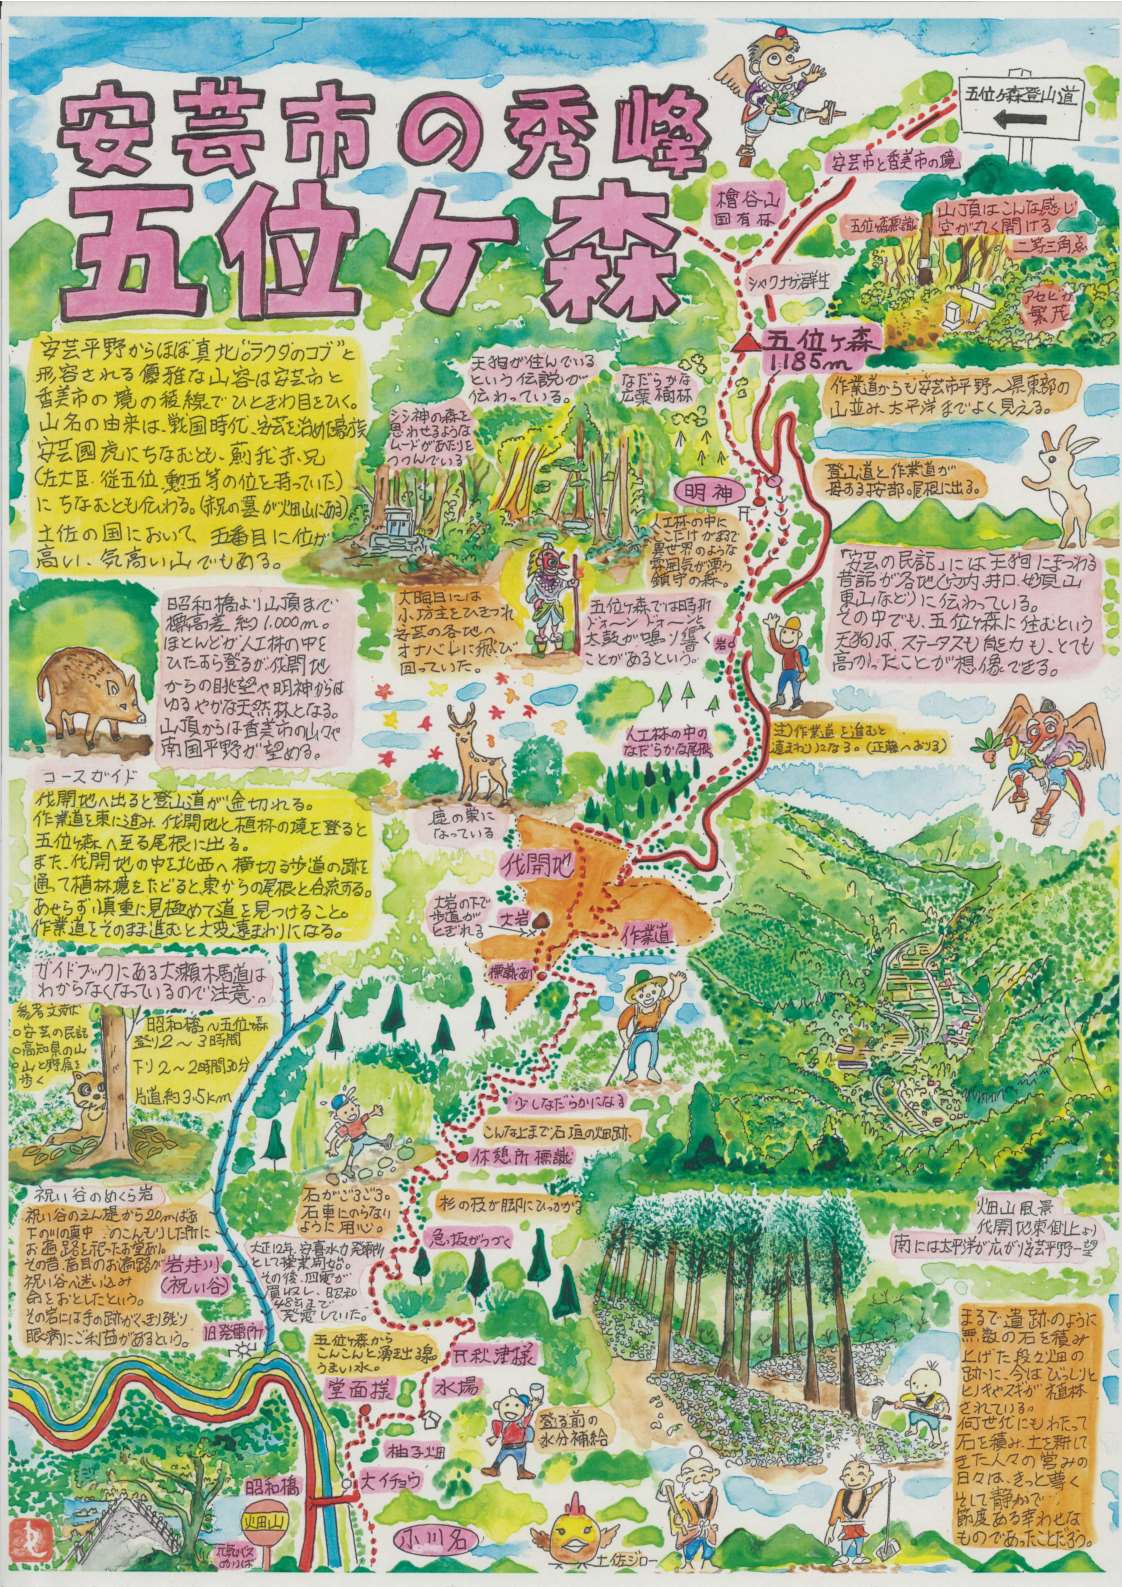 安芸市の秀峰
五位ケ森
五位ヶ森登山道
安芸市と香美市の境
檜谷山
国有林
五位ヶ森標識
山頂はこんな感じ
空が丸く開ける
二等三角点
アセビが
繁茂
シャクナゲ群生
五位ヶ森
1.185m
安芸平野からほぼ真北“ラクダのコブ”と
形容される優雅な山容は安芸市と
香美市の境の稜線でひときわ目をひく。
山名の由来は、戦国時代、安芸を治めた豪族
安芸國虎にちなむとも、蘇我赤兄
(左大臣・従五位、勲五等の位を持っていた)
にちなむとも伝わる。(赤兄の墓が畑山にある)
土佐の国において五番目に位が
高い、気高い山でもある。
天狗が住んでいる
という伝説が
伝わっている。
なだらかな
広葉樹林
シシ神の森を
思わせるような
ムードがあたりを
つつんでいる
作業道からも安芸市平野〜県東部の
山並み、太平洋までよく見える。
登山道と作業道が
尾根に出る。
明神
人工林の中に
ここだけがまるで
異世界のような
雰囲気が漂う
鎮守の森。
「安芸の民話」には天狗にまつわる
昔話が各地(穴内、井口、
東山など)に伝わっている。
その中でも、五位ヶ森に住むという
天狗は、ステータスも能力も、とても
高かったことが想像できる。
昭和橋より山頂まで
標高差 約1.000m。
ほとんどが人工林の中を
ひたすら登るが伐開地
からの眺望や明神からは
ゆるやかな天然林となる。
山頂からは香美市の山々や
南国平野が望める。
大晦日には
小坊主をひきつれ
安芸の各地へ
オナバレに飛び
回っていた。
五位ヶ森では時折
ドォーンドォーンと
太鼓が鳴り響く
ことがあるという。
岩
人工林の中の
なだらかな尾根
注)作業道を進むと
遠まわりになる。(正藤へおりる)
鹿の巣に
なっている
コースガイド
伐開地へ出ると登山道が途切れる。
作業道を東に進み、伐開地と植林の境を登ると
五位ヶ森へ至る尾根に出る。
また、伐開地の中を北西へ横切る歩道の跡を
通って植林境をたどると東からの尾根と合流する。
あせらず慎重に見極めて道を見つけること。
作業道をそのまま進むと大変遠まわりになる。
伐開地
大岩の下で
歩道が
とぎれる
大岩
作業道
標識あり
ガイドブックにある大瀬木馬道は
わからなくなっているので注意
参考文献
○安芸の民話
○高知県の山
○山と野原を
歩く
昭和橋〜五位ヶ森
登り2〜3時間
下り2〜2時間30分
片道約3.5km
少しなだらかになる
こんな上まで石垣の畑跡
休憩所 標識
石がごろごろ。
石車にのらない
ように用心。
杉の枝が脚にひっかかる
急坂がつづく
祝い谷のめくら岩
祝い谷のえん堤から20mほど
下の川の真中
お遍路を祀ったお堂あり。
その昔、盲目のお遍路が
祝い谷へ迷い込み
命をおとしたという。
その岩には手の跡がくっきり残り
眼病にご利益があるという。
岩井川
(祝い谷)
旧発電所
大正12年、安喜水力発電所
として操業開始。
その後、四電が
買収し、昭和
48年まで
発電していた。
五位ヶ森から
こんこんと湧き出る
うまい水。
堂面様
水場
秋津様
登る前の
水分補給
柚子畑
大イチョウ
昭和橋
畑山
元気バス
のりば
小川名
土佐ジロー
畑山風景
伐開地東側上より
南には太平洋が広がり安芸平野一望
まるで遺跡のように
無数の石を積み
上げた段々畑の
跡に、今はびっしりと
ヒノキやスギが植林
されている。
何世代にもわたって
石を積み、土を耕して
きた人々の営みの
日々は、きっと尊く
そして静かで
節度ある幸わせな
ものであったことだろう。